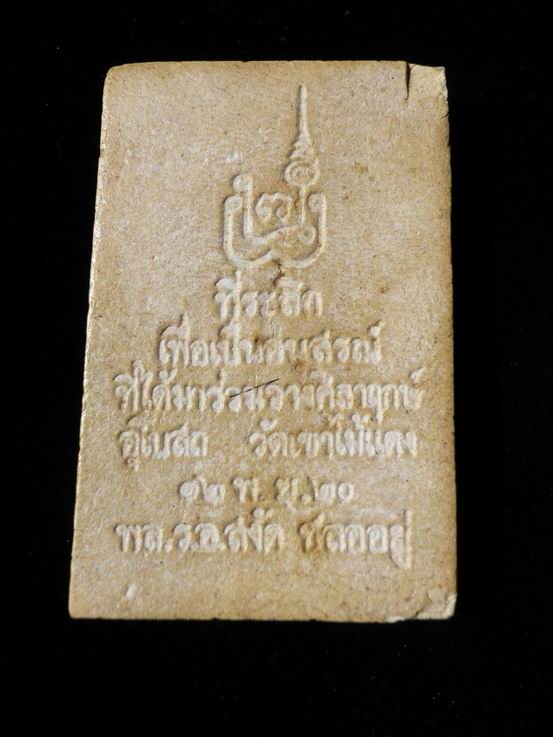 ที่ระลึก
เพื่อเป็นอนุสรณ์
ที่ได้มาร่วมวางศิลาฤกษ์
อุโบสถ วัดเขาไม้แดง
๑๒ พ.ย.๒๐
พล.ร.อ.สงัด ชลออยู่